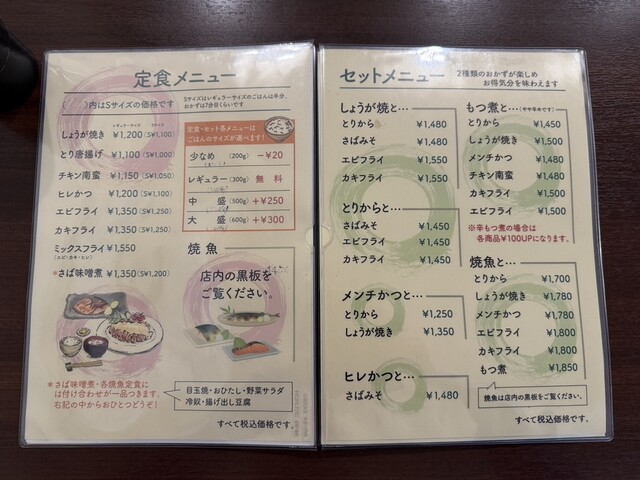 定食メニュー
( )内はSサイズの価格です
Sサイズはレギュラーサイズのごはんは半分、
おかずは7分目くらいです
レギュラーサイズ Sサイズ
しょうが焼き ¥1,200 (S¥1,100)
とり唐揚げ ¥1,100 (S¥1,000)
チキン南蛮 ¥1,150 (S¥1,050)
ヒレかつ ¥1,200 (S¥1,100)
エビフライ ¥1,350 (S¥1,250)
カキフライ ¥1,350 (S¥1,250)
ミックスフライ ¥1,550
(エビ・カキ・ヒレ)
*さば味噌煮 ¥1,350 (S¥1,200)
定食・セット各メニューは
ごはんのサイズが選べます!
少なめ (200g) －¥20
レギュラー (300g) 無料
中盛 (500g) +¥250
大盛 (600g) +¥300
焼魚
店内の黒板を
ご覧ください。
*さば味噌煮・各焼魚定食に
は付け合わせが一品つきます。
右記の中からおひとつどうぞ!
目玉焼・おひたし・野菜サラダ
冷奴・揚げ出し豆腐
すべて税込価格です。
セットメニュー
2種類のおかずが楽しめ
お得気分を味わえます
しょうが焼と…
とりから ¥1,480
さばみそ ¥1,480
エビフライ ¥1,550
カキフライ ¥1,550
とりからと…
さばみそ ¥1,450
エビフライ ¥1,450
カキフライ ¥1,450
メンチかつと…
とりから ¥1,250
しょうが焼き ¥1,350
ヒレかつと…
さばみそ ¥1,480
もつ煮と…
とりから ¥1,450
しょうが焼き ¥1,500
メンチかつ ¥1,480
チキン南蛮 ¥1,480
カキフライ ¥1,500
エビフライ ¥1,500
※辛もつ煮の場合は
各商品¥100UPになります。
焼魚と…
とりから ¥1,700
しょうが焼き ¥1,780
メンチかつ ¥1,780
エビフライ ¥1,800
カキフライ ¥1,800
もつ煮 ¥1,850
焼魚は店内の黒板をご覧ください。
すべて税込価格です。